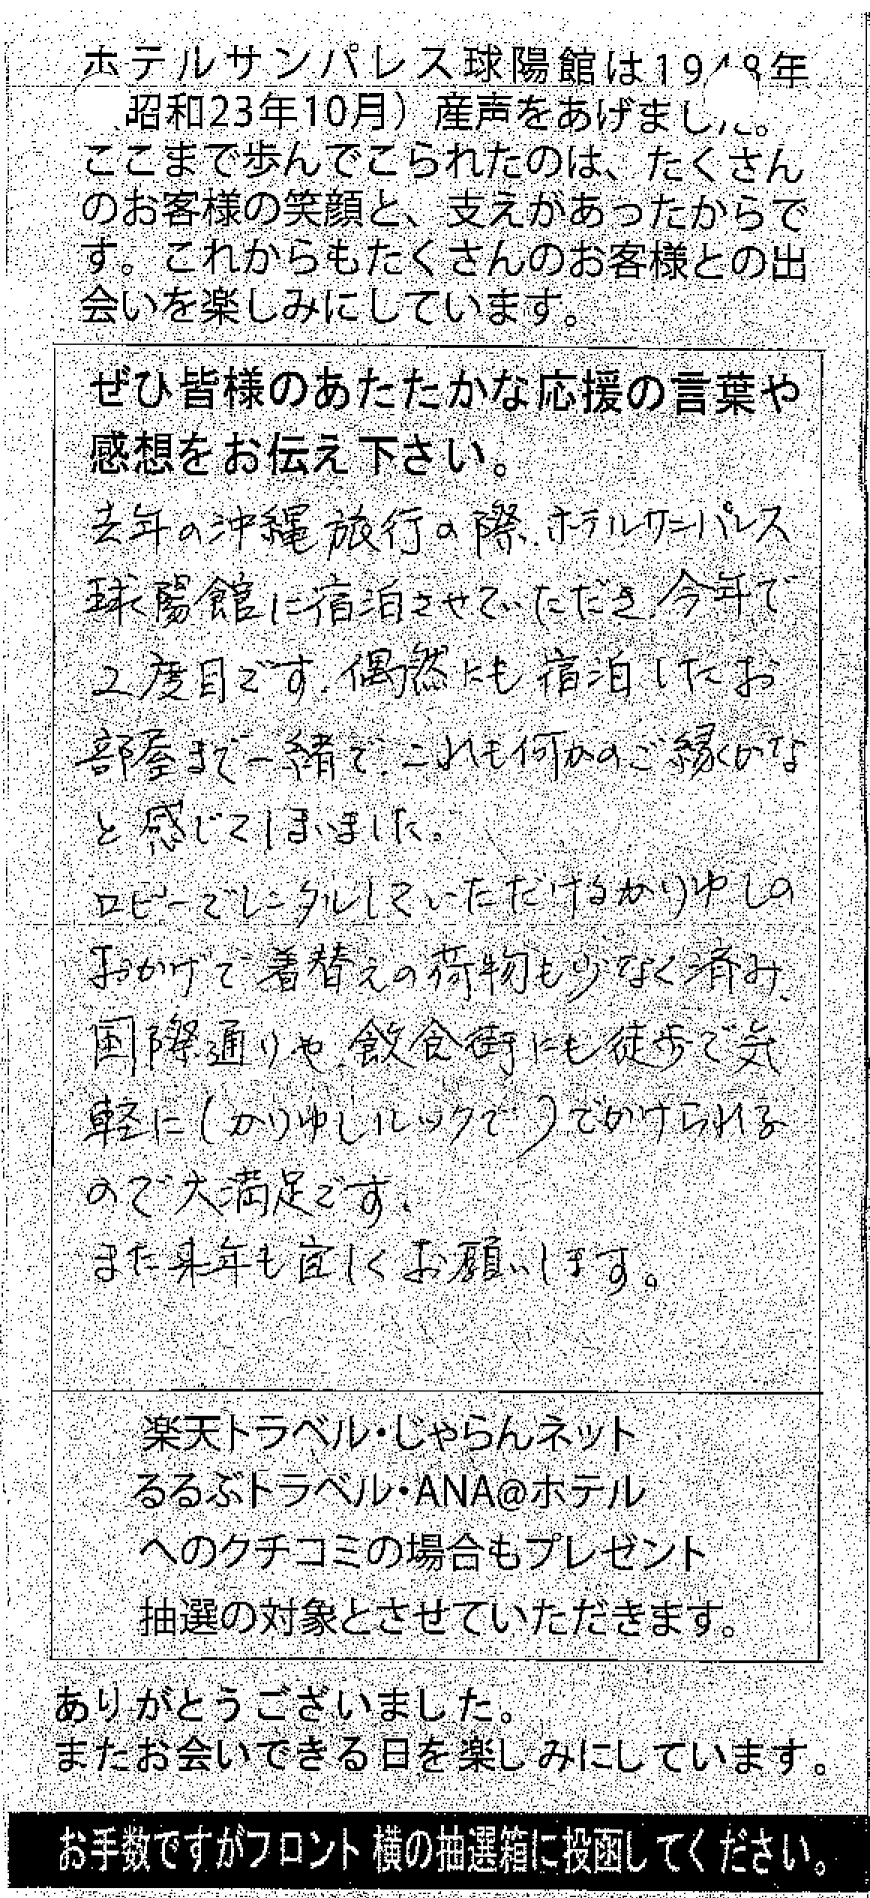 ホテルサンパレス球陽館は1948年
昭和23年10月）産声をあげました。
ここまで歩んでこられたのは、たくさん
のお客様の笑顔と、支えがあったからで
す。これからもたくさんのお客様との出
会いを楽しみにしています。
ぜひ皆様のあたたかな応援の言葉や
感想をお伝え下さい。
去年の沖縄旅行の際、ホテルサンパレス
球陽館に宿泊させていただき、今年で
2度目です。偶然にも宿泊したお
部屋まで一緒で、これも何かのご縁かな
と感じてしまいました。
ロビーでレンタルしていただけるかりゆしの
おかげで着替えの荷物も少なく済み、
国際通りや、飲食街にも徒歩で気
軽に（かりゆしルックで）でかけられる
ので大満足です。
また来年も宜しくお願いします。
楽天トラベル・じゃらんネット
るるぶトラベル・ANA@ホテル
へのクチコミの場合もプレゼント
抽選の対象とさせていただきます。
ありがとうございました。
またお会いできる日を楽しみにしています。
お手数ですがフロント横の抽選箱に投函してください。